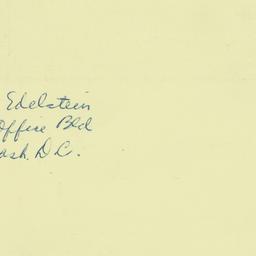 Edelstein
Office Bld
ash. D.C.